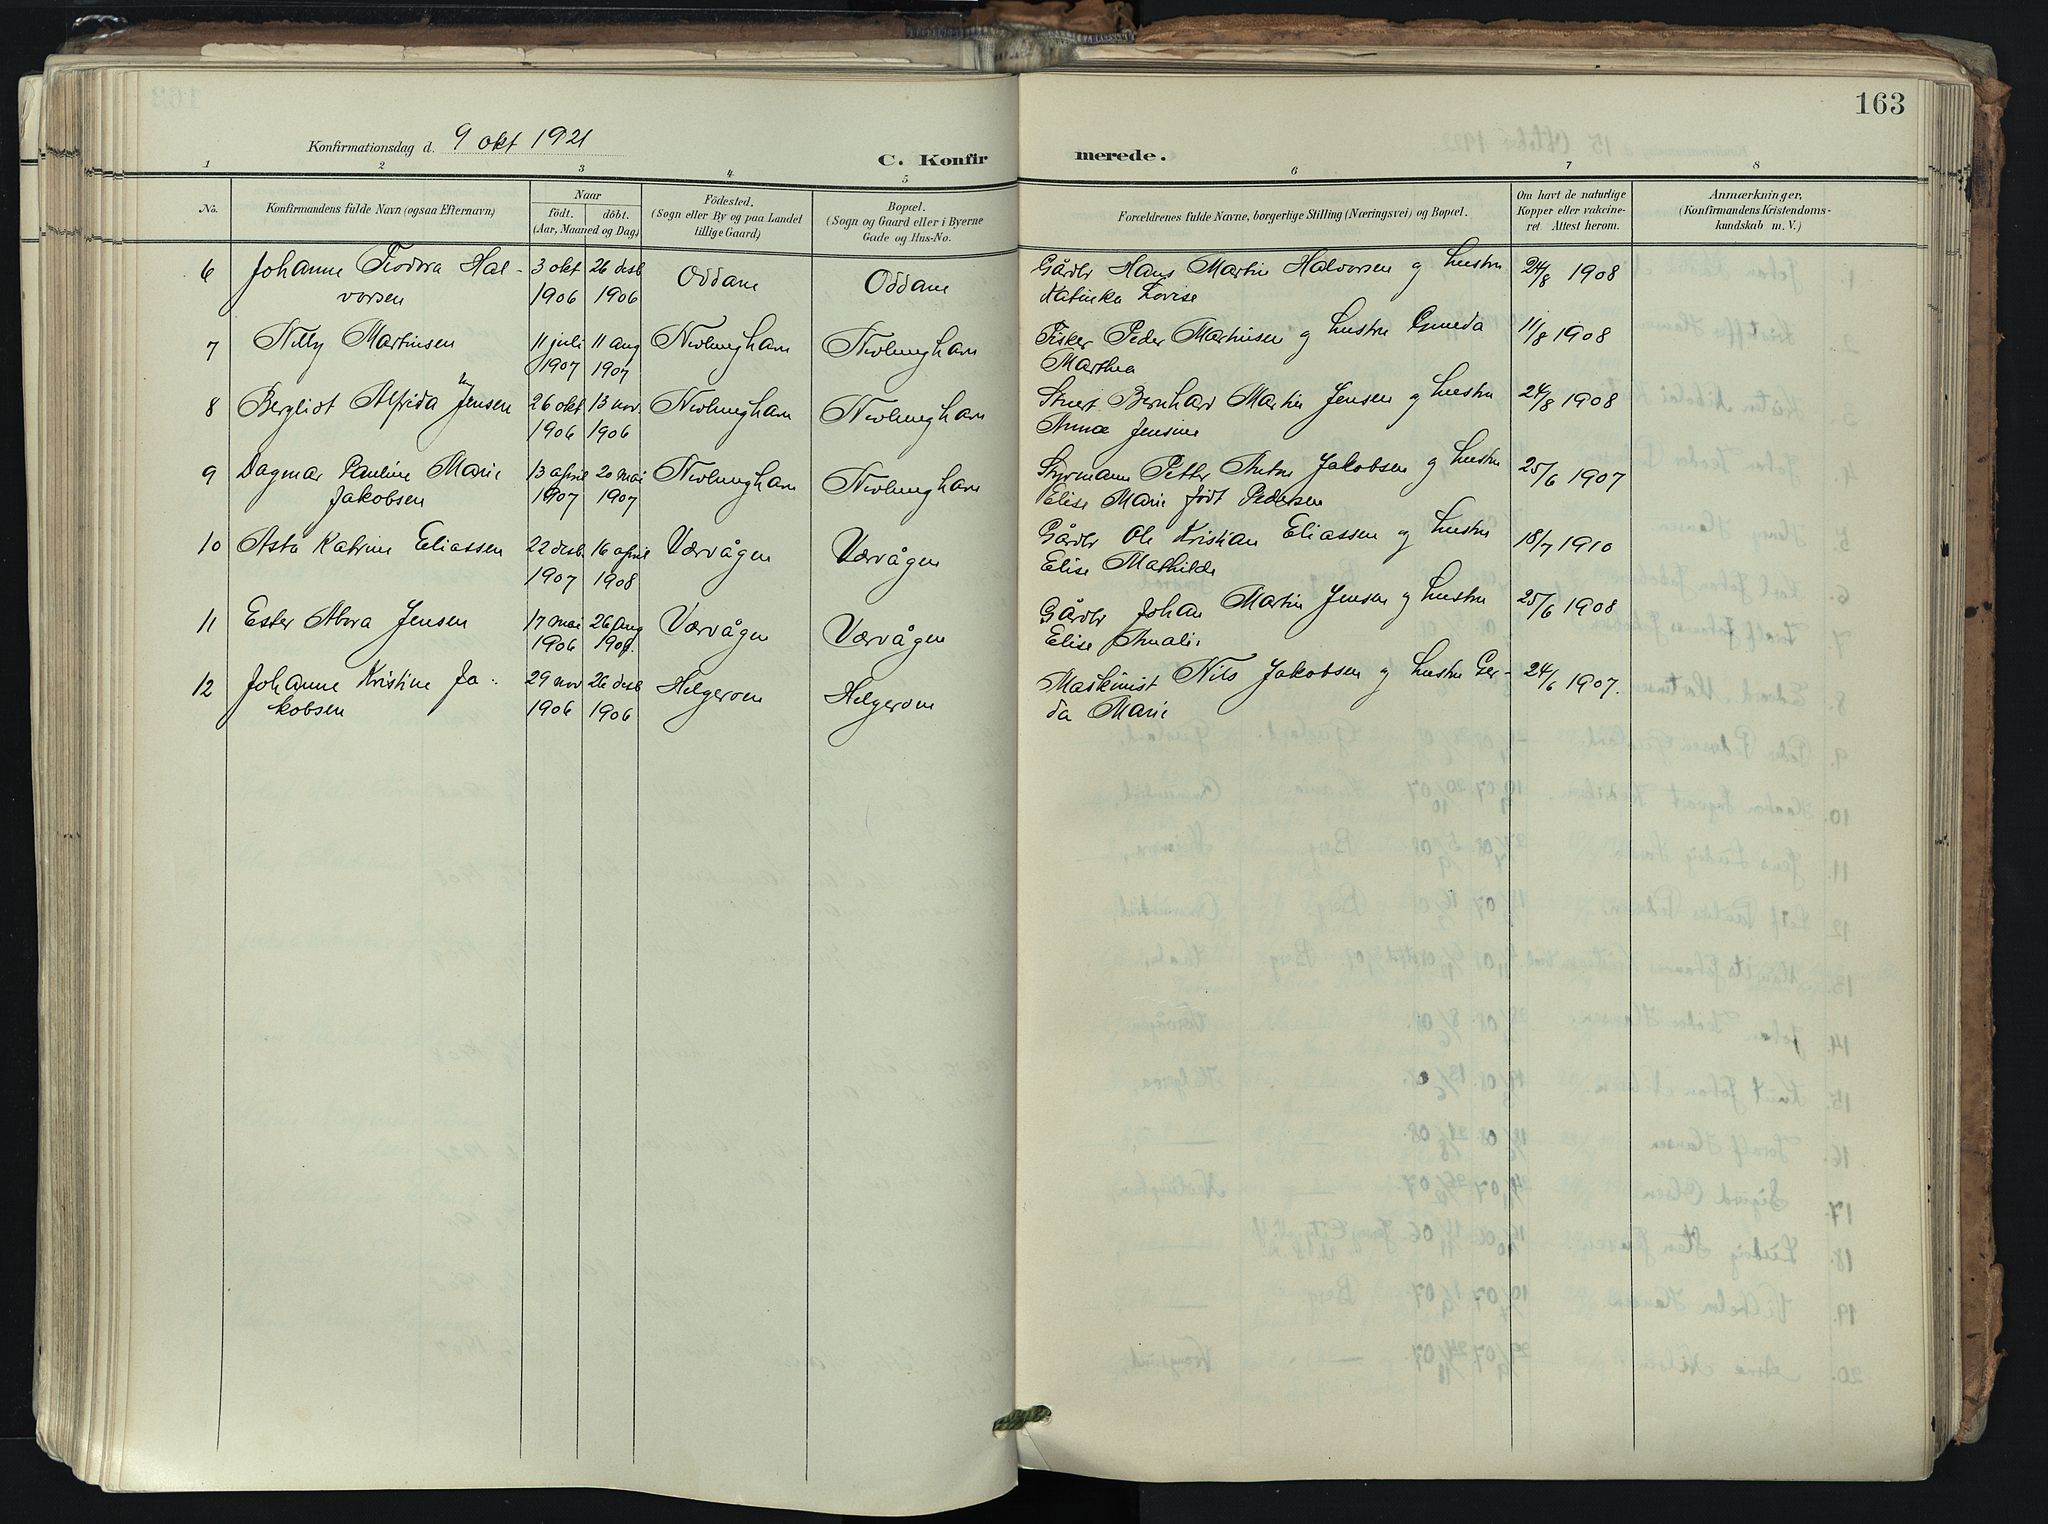 163
Konfirmationsdag d. 9 okt 1921
C. Konfirmerede.
1 2 3 4 5 6 7 8
No.
Konfirmandens fulde Navn (ogsaa Efternavn)
Naar
födt. döbt.
(Aar, Maaned og Dag.)
Födested.
(Sogn eller By og paa Landet
tillige Gaard.)
Bopæl.
(Sogn og Gaard eller i Byerne
Gade og Hus-No.
Forældrenes fulde Navne, borgerlige Stilling (Næringsvei) og Bopæl.
Om havt de naturlige
Kopper eller vakcine-
ret. Attest herom.
Anmærkninger,
(Konfirmandens Kristendoms-
kundskab m. V.)
6 Johanne Teodora Hal- 3 okt 26 desb Oddane Oddane Gårdbr Hans Martin Halvorsen og hustru 24/8 1908
vorsen 1906 1906 Katinka Lovise
7 Nilly Martinsen 11 juli 11 aug Nevlunghavn Nevlunghavn Fisker Peder Martinsen og hustru 11/8 1908
1907 1907 Marthea
8 Bergliot Alfrida Jensen 26 okt 13 nov Nevlunghavn Nevlunghavn Bernhard Martin Jensen og hustru 24/8 1908
1906 1906 Anna Jensine
9 Dagmar Pauline Marie 13 april 20 mai Nevlunghavn Nevlunghavn Styrmann Petter Anton Jakobsen og hustru 25/6 1907
Jakobsen 1907 1907 Elise Marie født Pedersen
10 Asta Katrine Eliassen 22 desb 16 april Værvågen Værvågen Gårdbr Ole Kristian Eliassen og hustru 18/7 1910
1907 1908 Elise Mathilde
11 Ester Abora Jensen 17 mai 26 aug Værvågen Værvågen Gårdbr Johan Martin Jensen og hustru 25/6 1908
1906 1906. Elise Amalie
12 Johanne Kristine Ja- 29 nov 26 desb Helgeroen Helgeroen Maskinist Nils Jakobsen og hustru Ger- 24/6 1907.
kobsen 1906 1906 da Marie